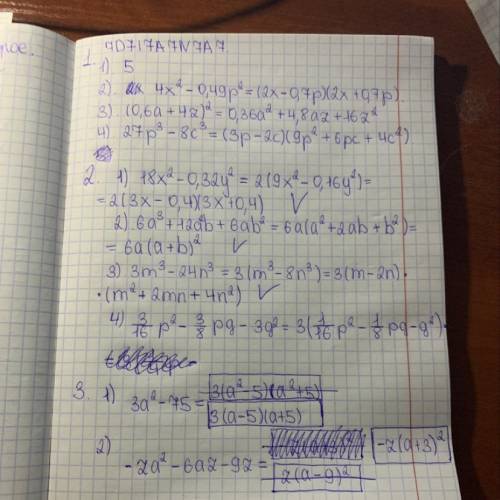 1. 4D717A7N7A7
1) 5
2) 4x² - 0,49p² = (2x - 0,7p)(2x + 0,7p)
3) (0,6a + 4z)² = 0,36a² + 4,8az + 16z²
4) 27p³ - 8c³ = (3p - 2c)(9p² + 6pc + 4c²)
2. 1) 18x² - 0,32y² = 2(9x² - 0,16y²) =
= 2(3x - 0,4)(3x + 0,4) ✓
2) 6a³ + 12a²b + 6ab² = 6a(a² + 2ab + b²) =
= 6a(a + b)² ✓
3) 3m³ - 24n³ = 3(m³ - 8n³) = 3(m - 2n) ·
· (m² + 2mn + 4n²) ✓
4) 3/16 p² - 3/8 pg - 3g² = 3(1/16 p² - 1/8 pg - g²)
3. 1) 3a² - 75 = 3(a² - 5)(a² + 5)
3(a - 5)(a + 5)
2) -za² - 6az - 9z = -z(a + 3)²
z(a - 9)²